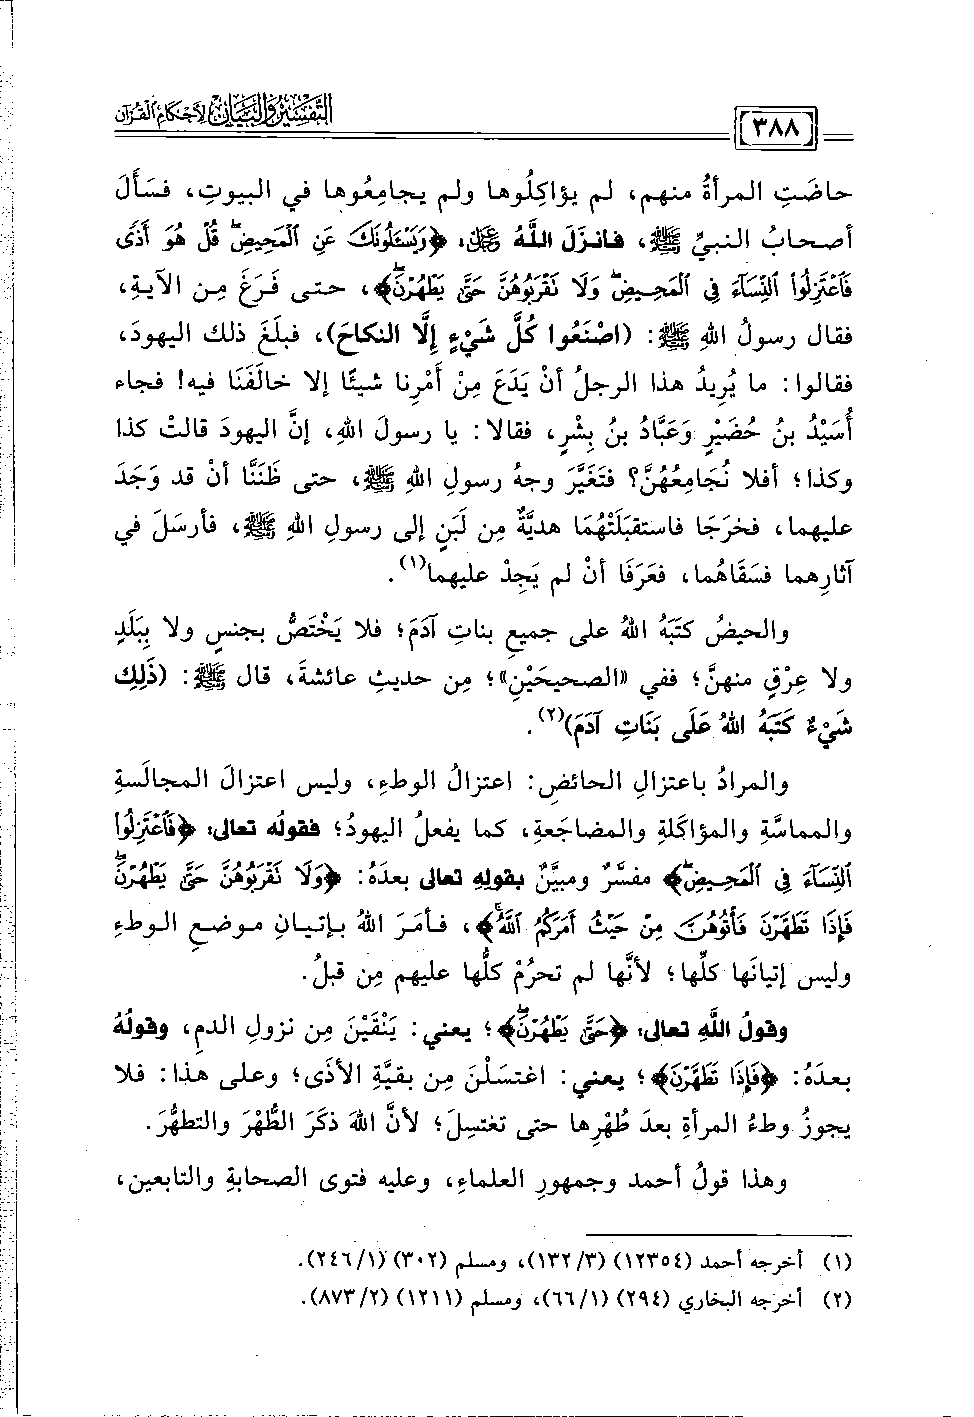 التفسير والبيان لأحكام القرآن
٣٨٨
حاضَتِ المرأةُ منهم، لم يؤاكِلُوها ولم يجامِعُوها في البيوتِ، فسَأَلَ
أصحابُ النبيِّ ﷺ، فانزَلَ اللهُ ﷻ: ﴿وَيَسْـَٔلُونَكَ عَنِ ٱلْمَحِيضِ ۖ قُلْ هُوَ أَذًى
فَٱعْتَزِلُوا۟ ٱلنِّسَآءَ فِى ٱلْمَحِيضِ ۖ وَلَا تَقْرَبُوهُنَّ حَتَّىٰ يَطْهُرْنَ ۖ﴾، حتى فَرَغَ مِن الآيةِ،
فقال رسولُ اللهِ ﷺ: (اصْنَعُوا كُلَّ شَيْءٍ إِلَّا النكاحَ)، فبلَغَ ذلك اليهودَ،
فقالوا: ما يُرِيدُ هذا الرجلُ أنْ يَدَعَ مِنْ أَمْرِنا شيئًا إلا خالَفَنَا فيه! فجاء
أُسَيْدُ بنُ حُضَيْرٍ وَعَبَّادُ بنُ بِشْرٍ، فقالا: يا رسولَ اللهِ، إنَّ اليهودَ قالتْ كذا
وكذا؛ أفلا نُجَامِعُهُنَّ؟ فتَغَيَّرَ وجهُ رسولِ اللهِ ﷺ، حتى ظَنَنَّا أنْ قد وَجَدَ
عليهما، فخرَجَا فاستقبَلَتْهُمَا هديَّةٌ مِن لَبَنٍ إلى رسولِ اللهِ ﷺ، فأرسَلَ في
آثارِهما فسَقَاهُما، فعَرَفَا أنْ لم يَجِدْ عليهما(١).
والحيضُ كتَبَهُ اللهُ على جميعِ بناتِ آدَمَ؛ فلا يَخْتَصُّ بجنسٍ ولا بِبَلَدٍ
ولا عِرْقٍ منهنَّ؛ ففي «الصحيحَيْنِ»؛ مِن حديثِ عائشةَ، قال ﷺ: (ذَلِكِ
شَيْءٌ كَتَبَهُ اللهُ عَلَى بَنَاتِ آدَمَ)(٢).
والمرادُ باعتزالِ الحائضِ: اعتزالُ الوطءِ، وليس اعتزالَ المجالَسةِ
والمماسَّةِ والمؤاكَلةِ والمضاجَعةِ، كما يفعلُ اليهودُ؛ فقولُه تعالى: ﴿فَٱعْتَزِلُوا۟
ٱلنِّسَآءَ فِى ٱلْمَحِيضِ ۖ﴾ مفسَّرٌ ومبيَّنٌ بقولِهِ تعالى بعدَهُ: ﴿وَلَا تَقْرَبُوهُنَّ حَتَّىٰ يَطْهُرْنَ ۖ
فَإِذَا تَطَهَّرْنَ فَأْتُوهُنَّ مِنْ حَيْثُ أَمَرَكُمُ ٱللَّهُ ۚ﴾، فأمَرَ اللهُ بإتيانِ موضعِ الوطءِ
وليس إتيانَها كلِّها؛ لأنَّها لم تحرُمْ كلُّها عليهم مِن قبلُ.
وقولُ اللَّهِ تعالى: ﴿حَتَّىٰ يَطْهُرْنَ ۖ﴾؛ يعني: يَنْقَيْنَ مِن نزولِ الدمِ، وقولُهُ
بعدَهُ: ﴿فَإِذَا تَطَهَّرْنَ﴾؛ يعني: اغتسَلْنَ مِن بقيَّةِ الأذى؛ وعلى هذا: فلا
يجوزُ وطءُ المرأةِ بعدَ طُهْرِها حتى تغتسِلَ؛ لأنَّ اللهَ ذكَرَ الطُّهْرَ والتطهُّرَ.
وهذا قولُ أحمدَ وجمهورِ العلماءِ، وعليه فتوى الصحابةِ والتابعين،
(١) أخرجه أحمد (١٢٣٥٤) (١٣٢/٣)، ومسلم (٣٠٢) (٢٤٦/١).
(٢) أخرجه البخاري (٢٩٤) (٦٦/١)، ومسلم (١٢١١) (٨٧٣/٢).